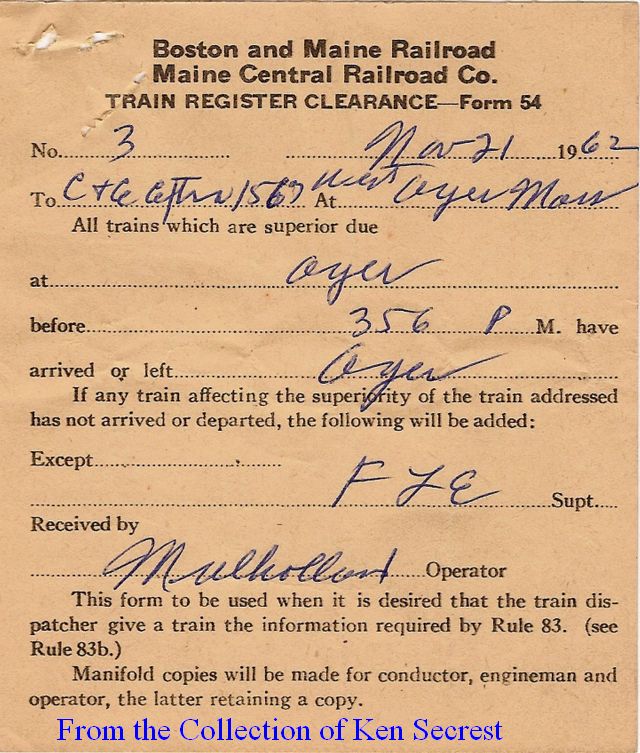 Boston and Maine Railroad
Maine Central Railroad Co.
TRAIN REGISTER CLEARANCE—Form 54
No. 3 Nov 21 1962
To C+E Extra 1567 At West Ayer Mass
All trains which are superior due
at Ayer
before 356 P M. have
arrived or left Ayer
If any train affecting the superiority of the train addressed
has not arrived or departed, the following will be added:
Except
F L E Supt.
Received by
Mulholland Operator
This form to be used when it is desired that the train dis-
patcher give a train the information required by Rule 83. (see
Rule 83b.)
Manifold copies will be made for conductor, engineman and
operator, the latter retaining a copy.
From the Collection of Ken Secrest